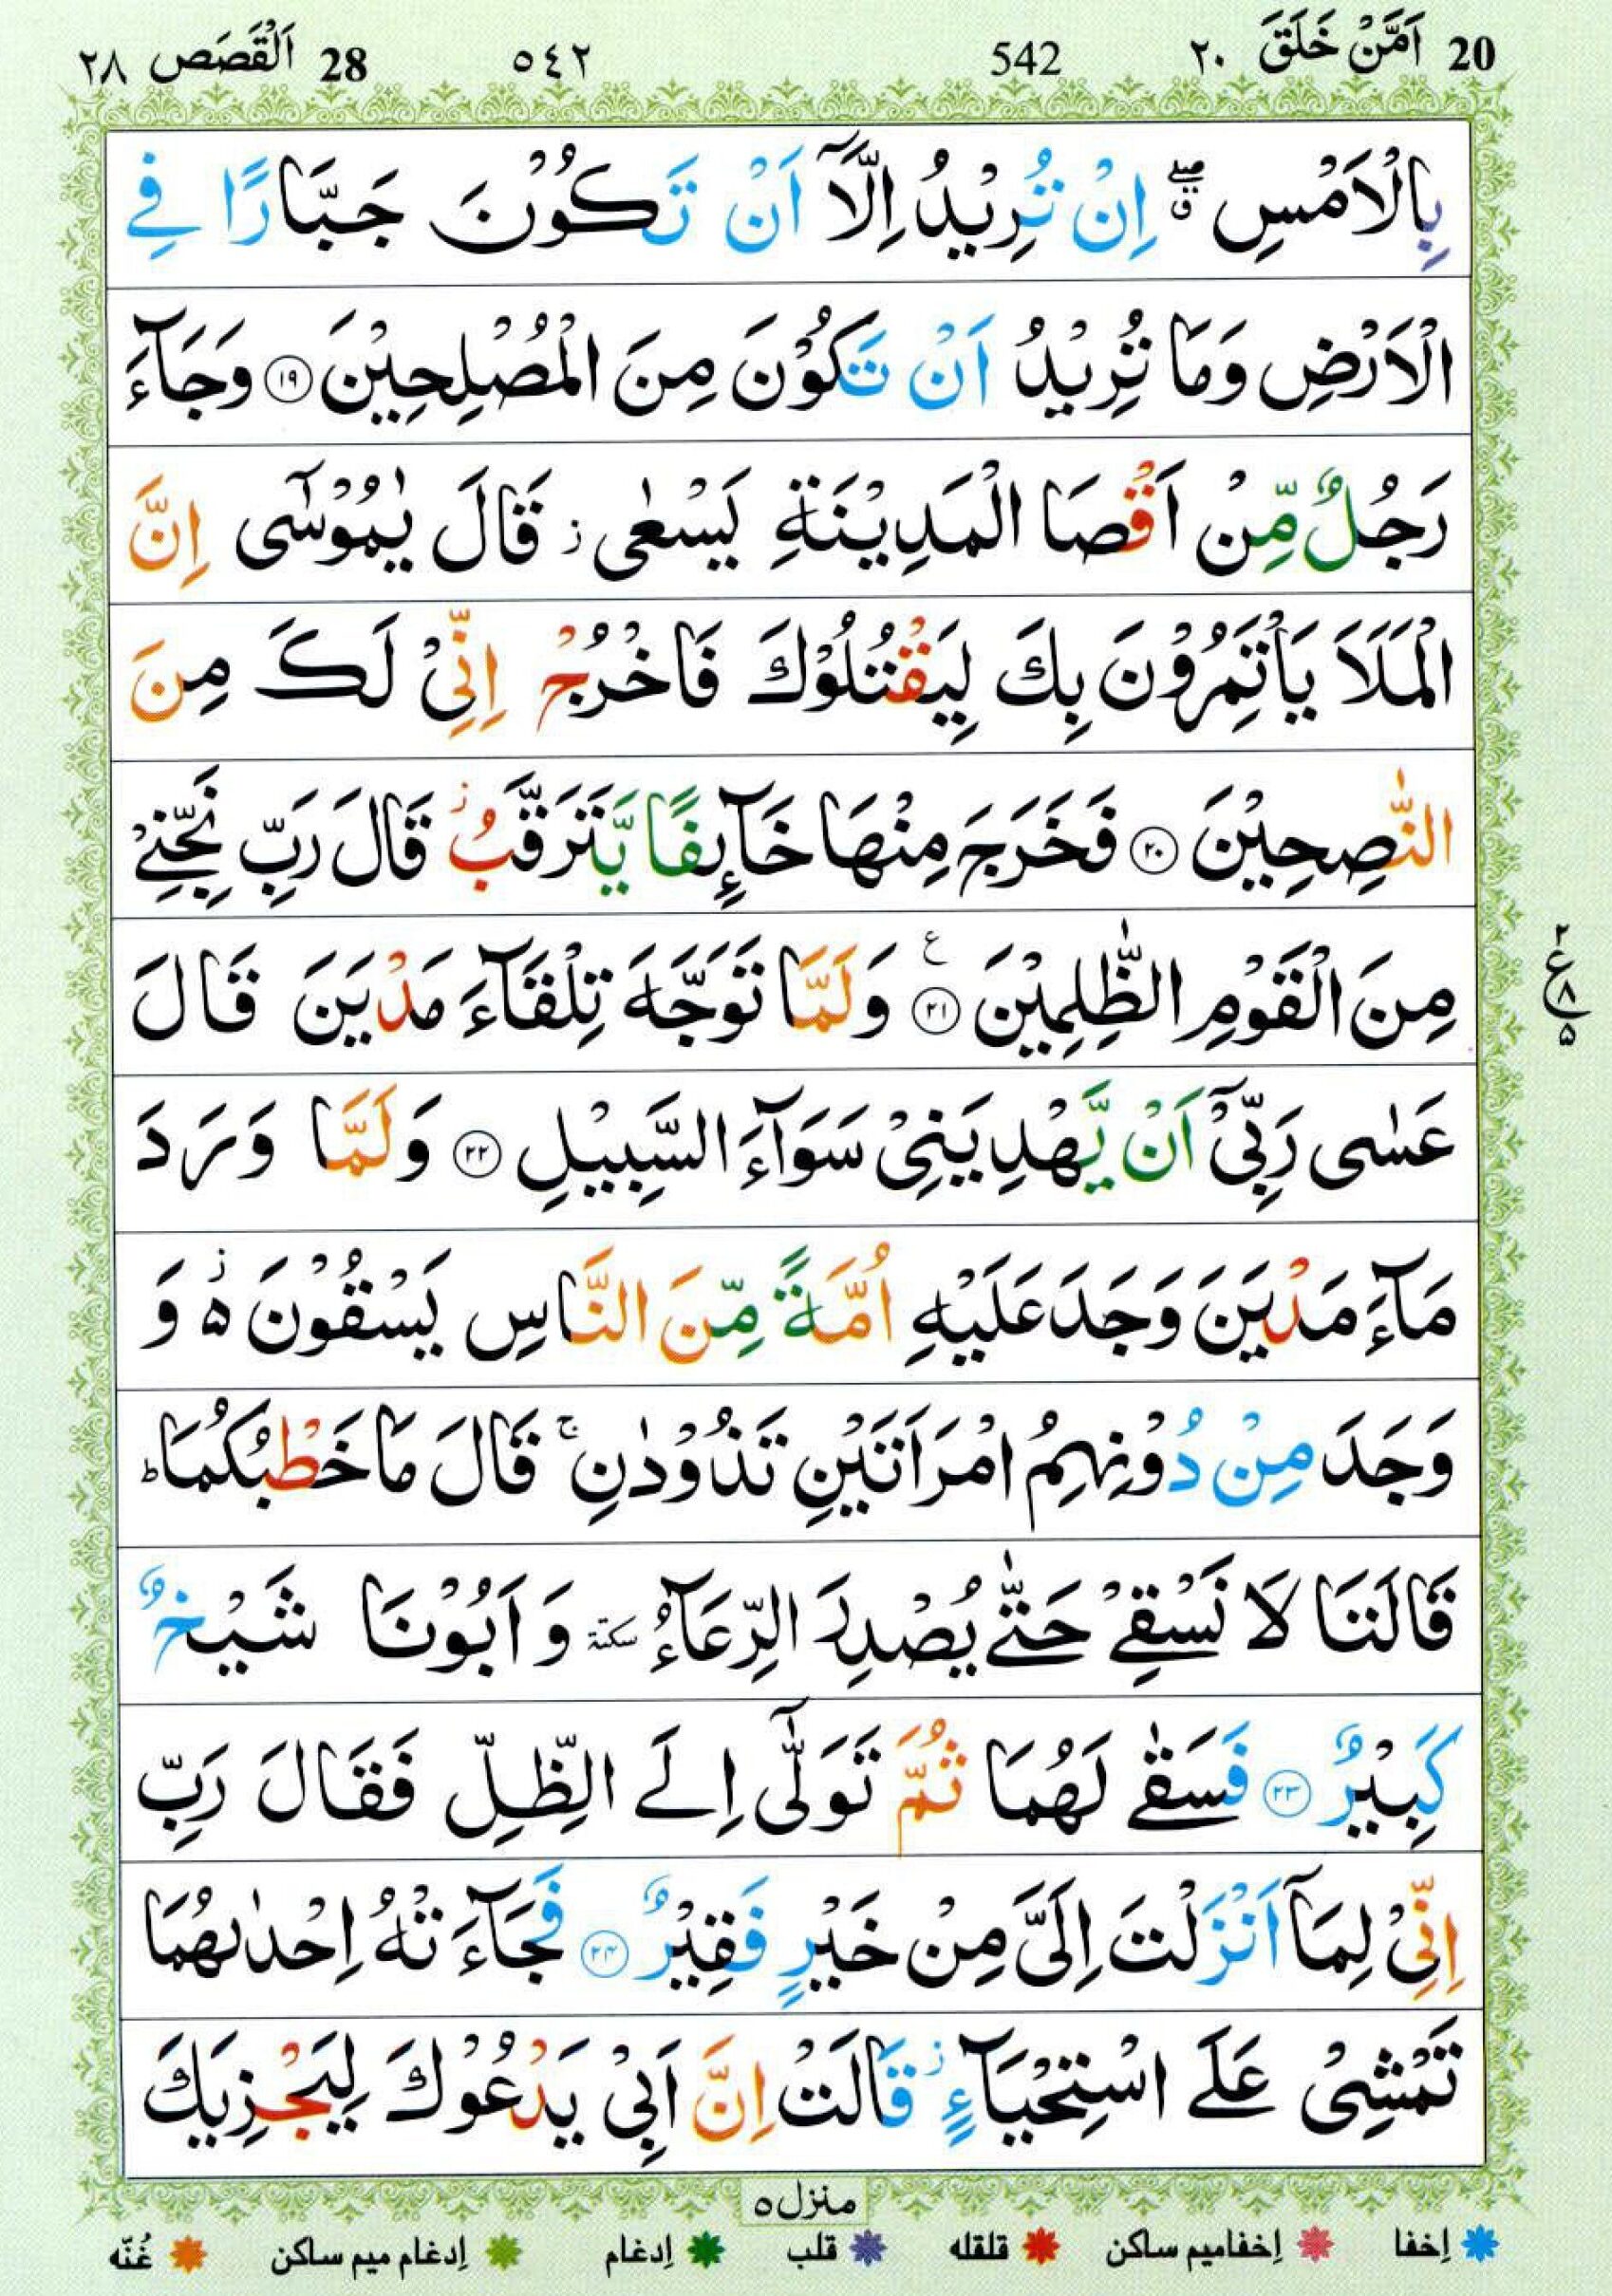 20 اَمَّنْ خَلَقَ ٢٠ 542 ٥٤٢ 28 اَلْقَصَص ٢٨
بِالْاَمْسِ ۖۗ اِنْ تُرِيْدُ اِلَّاۤ اَنْ تَكُوْنَ جَبَّارًا فِى
الْاَرْضِ وَمَا تُرِيْدُ اَنْ تَكُوْنَ مِنَ الْمُصْلِحِيْنَ ۝١٩ وَجَآءَ
رَجُلٌ مِّنْ اَقْصَا الْمَدِيْنَةِ يَسْعٰى ز قَالَ يٰمُوْسٰٓى اِنَّ
الْمَلَاَ يَاْتَمِرُوْنَ بِكَ لِيَقْتُلُوْكَ فَاخْرُجْ اِنِّىْ لَكَ مِنَ
النّٰصِحِيْنَ ۝٢٠ فَخَرَجَ مِنْهَا خَآئِفًا يَّتَرَقَّبُ ز قَالَ رَبِّ نَجِّنِىْ
مِنَ الْقَوْمِ الظّٰلِمِيْنَ ۝٢١ ع وَلَمَّا تَوَجَّهَ تِلْقَآءَ مَدْيَنَ قَالَ
٢ ع ٨ ٥
عَسٰى رَبِّىْۤ اَنْ يَّهْدِيَنِىْ سَوَآءَ السَّبِيْلِ ۝٢٢ وَلَمَّا وَرَدَ
مَآءَ مَدْيَنَ وَجَدَ عَلَيْهِ اُمَّةً مِّنَ النَّاسِ يَسْقُوْنَ ۵ ز وَ
وَجَدَ مِنْ دُوْنِهِمُ امْرَاَتَيْنِ تَذُوْدٰنِ ۚ قَالَ مَا خَطْبُكُمَا ؕ
قَالَتَا لَا نَسْقِىْ حَتّٰى يُصْدِرَ الرِّعَآءُ سكتة وَ اَبُوْنَا شَيْخٌ
كَبِيْرٌ ۝٢٣ فَسَقٰى لَهُمَا ثُمَّ تَوَلّٰٓى اِلَى الظِّلِّ فَقَالَ رَبِّ
اِنِّىْ لِمَاۤ اَنْزَلْتَ اِلَىَّ مِنْ خَيْرٍ فَقِيْرٌ ۝٢٤ فَجَآءَتْهُ اِحْدٰىهُمَا
تَمْشِىْ عَلَى اسْتِحْيَآءٍ ز قَالَتْ اِنَّ اَبِىْ يَدْعُوْكَ لِيَجْزِيَكَ
منزل ٥
إخفا إخفاميم ساكن قلقله قلب إدغام إدغام ميم ساكن غُنّه